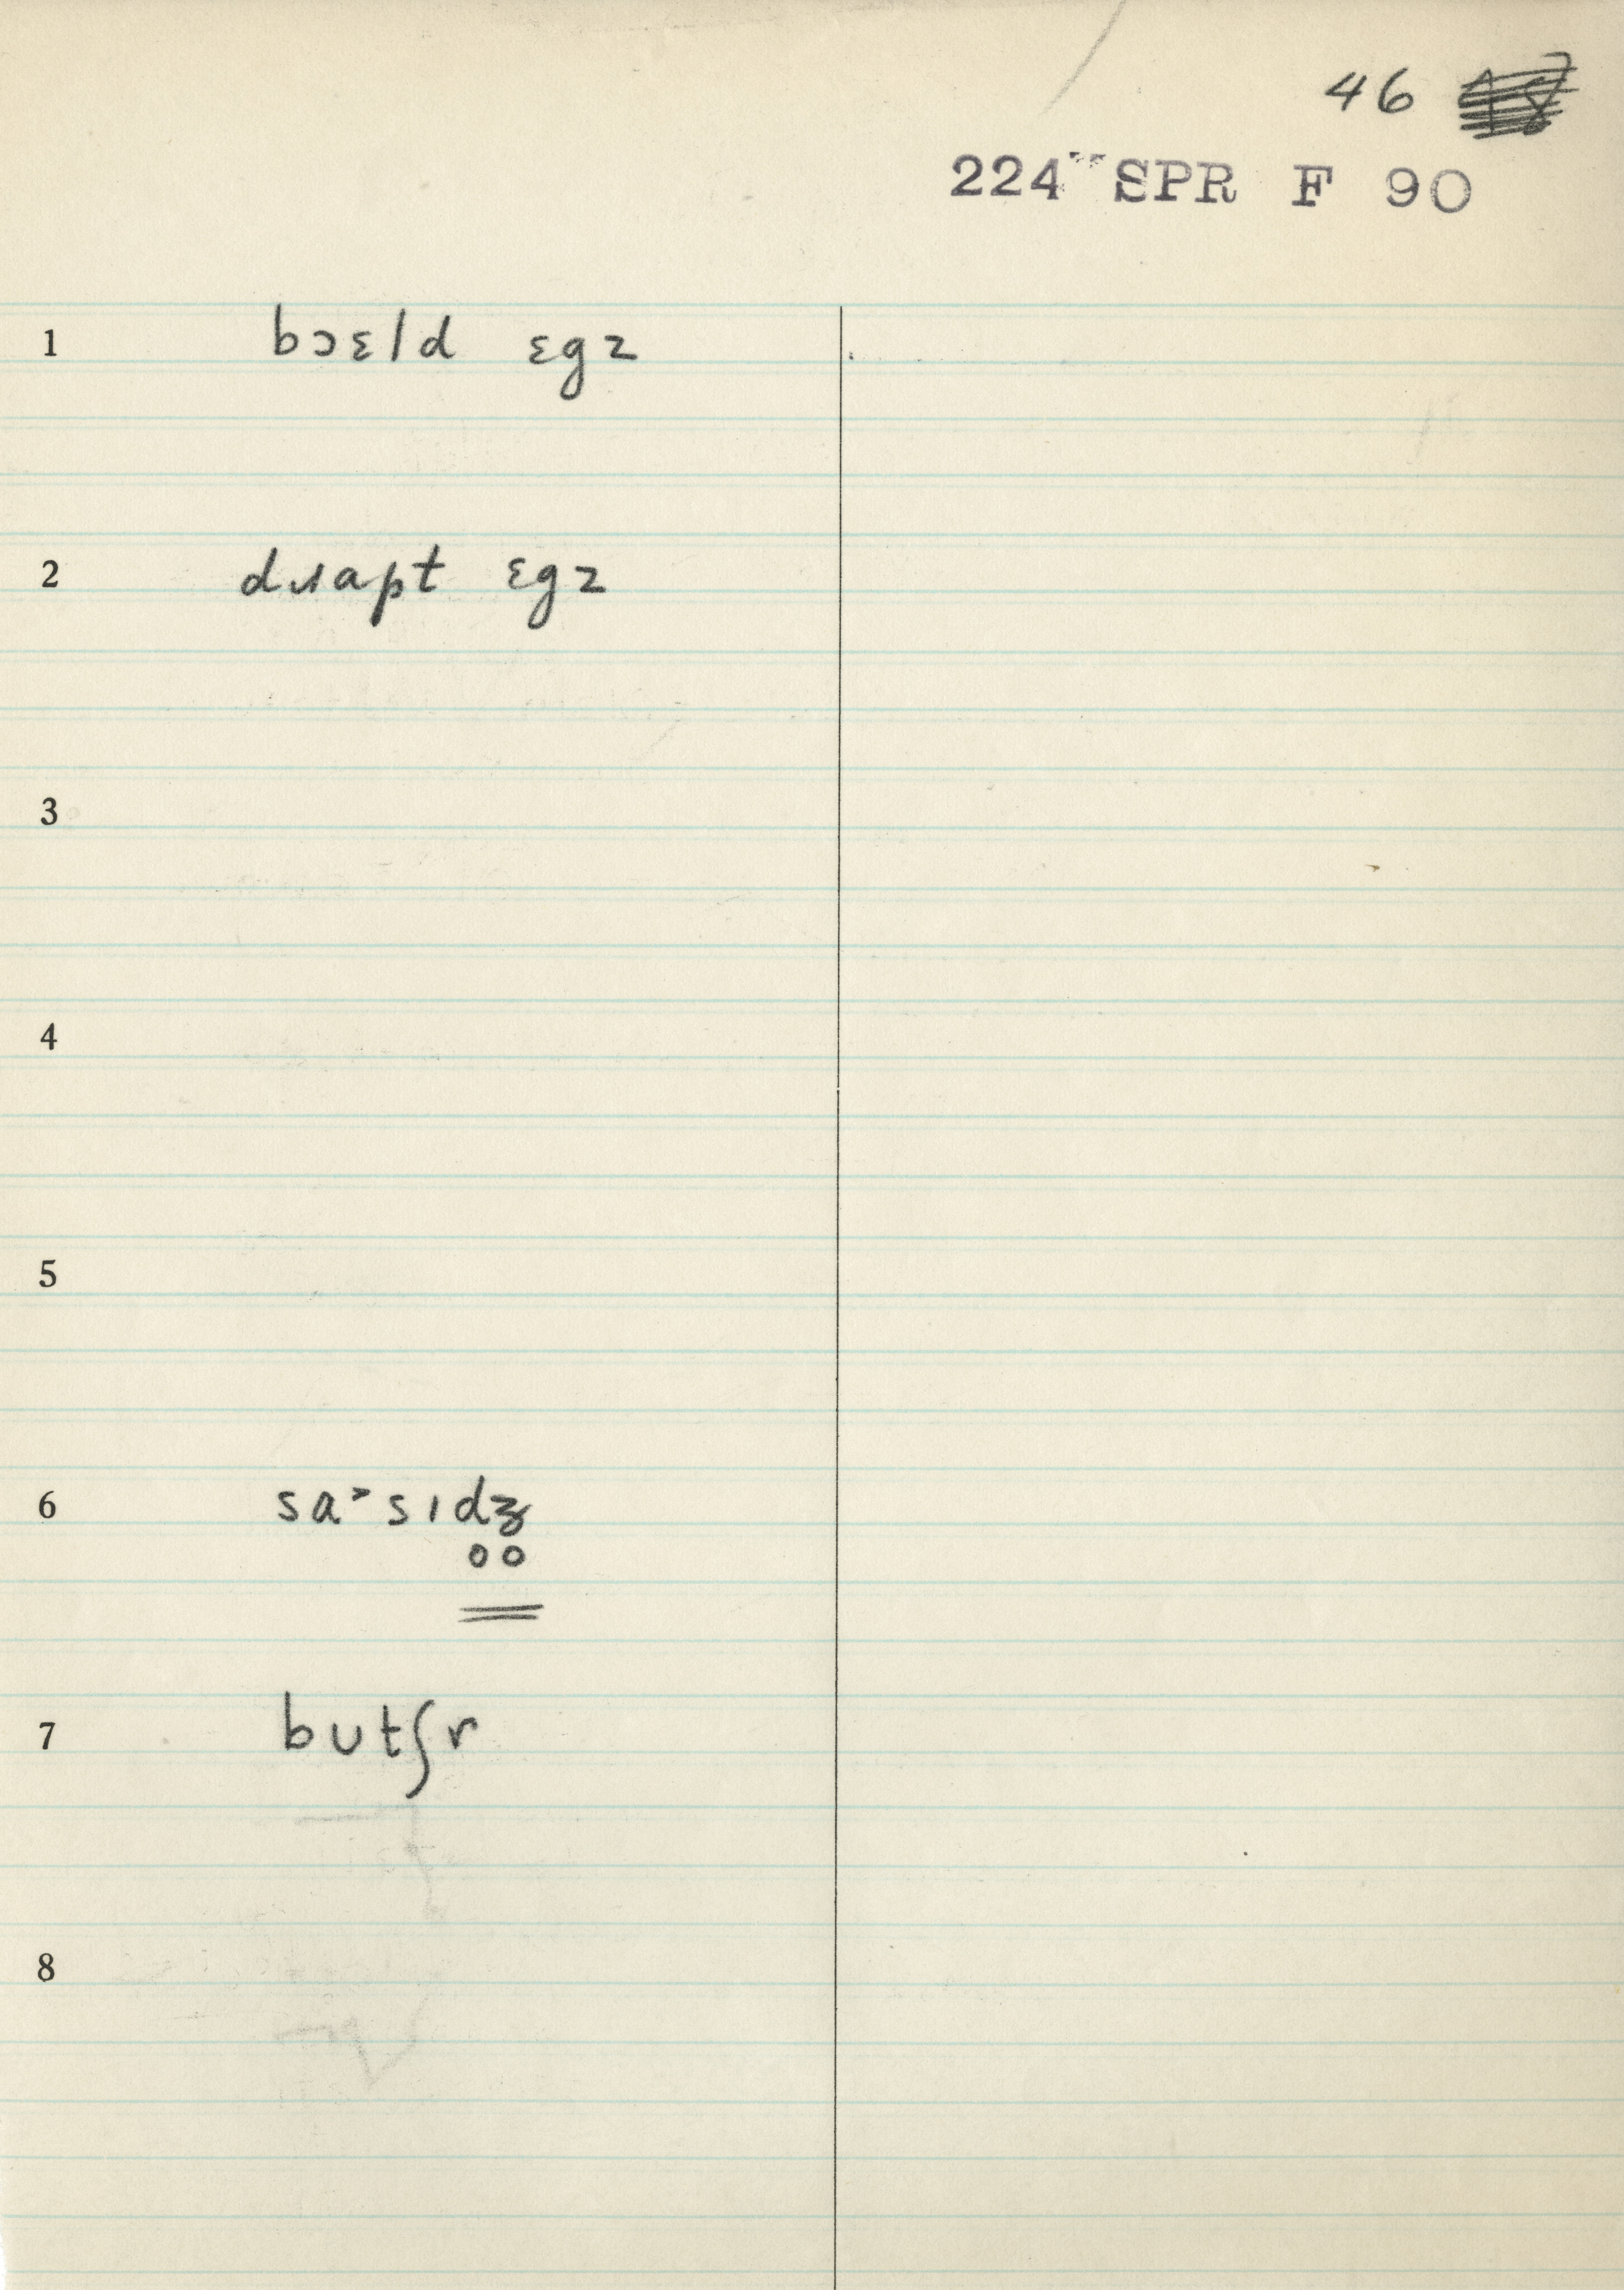 46
224 SPR F 90
1 bɔɛld ɛgz
2 dɹapt ɛgz
3
4
5
6 sa˃sɪdʒ̥
7 bʊtʃr
8